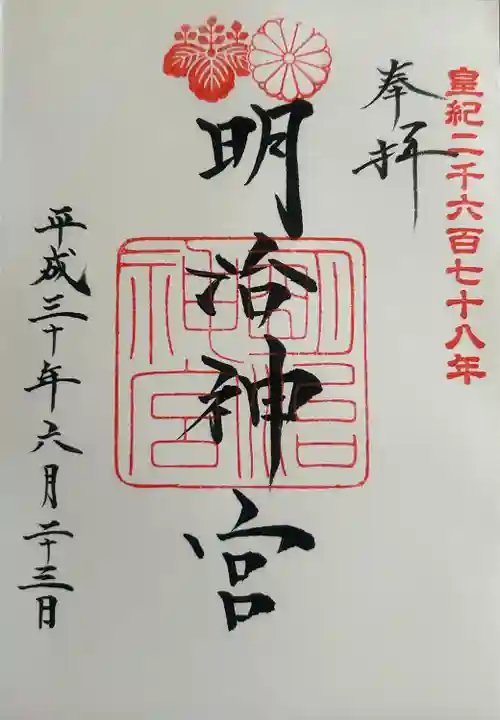 皇紀二千六百七十八年
奉拝
明治神宮
明治神宮
平成三十年六月二十三日